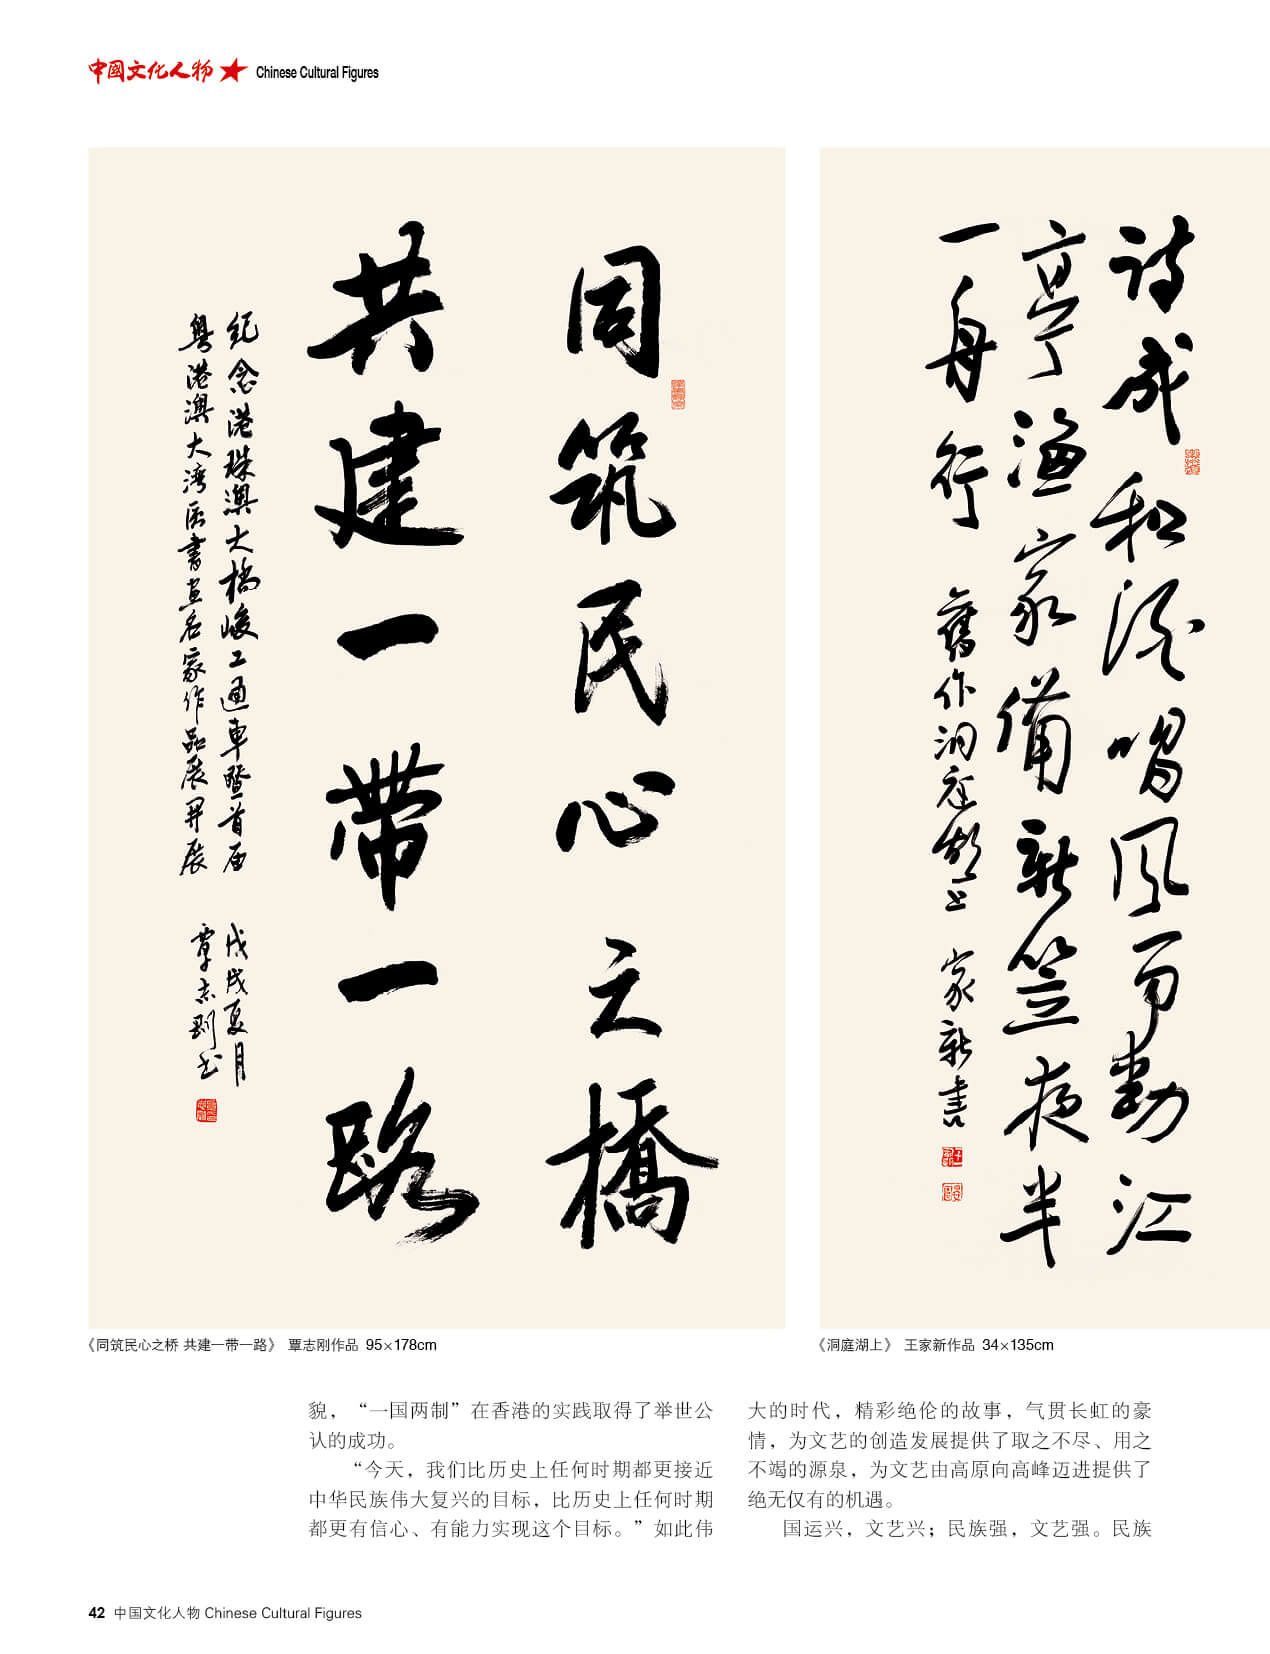 中國文化人物 ★ Chinese Cultural Figures
同筑民心之橋
共建一帶一路
纪念港珠澳大橋峻工通車暨首届
粤港澳大湾区書画名家作品展開展
戊戌夏月
覃志刚书
詩成和酒唱風雨動江
亭漁家備新笠夜半
一舟行
舊作洞庭湖上 家新書
《同筑民心之桥 共建一带一路》 覃志刚作品 95×178cm
《洞庭湖上》 王家新作品 34×135cm
貌，“一国两制”在香港的实践取得了举世公
认的成功。
“今天，我们比历史上任何时期都更接近
中华民族伟大复兴的目标，比历史上任何时期
都更有信心、有能力实现这个目标。”如此伟
大的时代，精彩绝伦的故事，气贯长虹的豪
情，为文艺的创造发展提供了取之不尽、用之
不竭的源泉，为文艺由高原向高峰迈进提供了
绝无仅有的机遇。
国运兴，文艺兴；民族强，文艺强。民族
42 中国文化人物 Chinese Cultural Figures